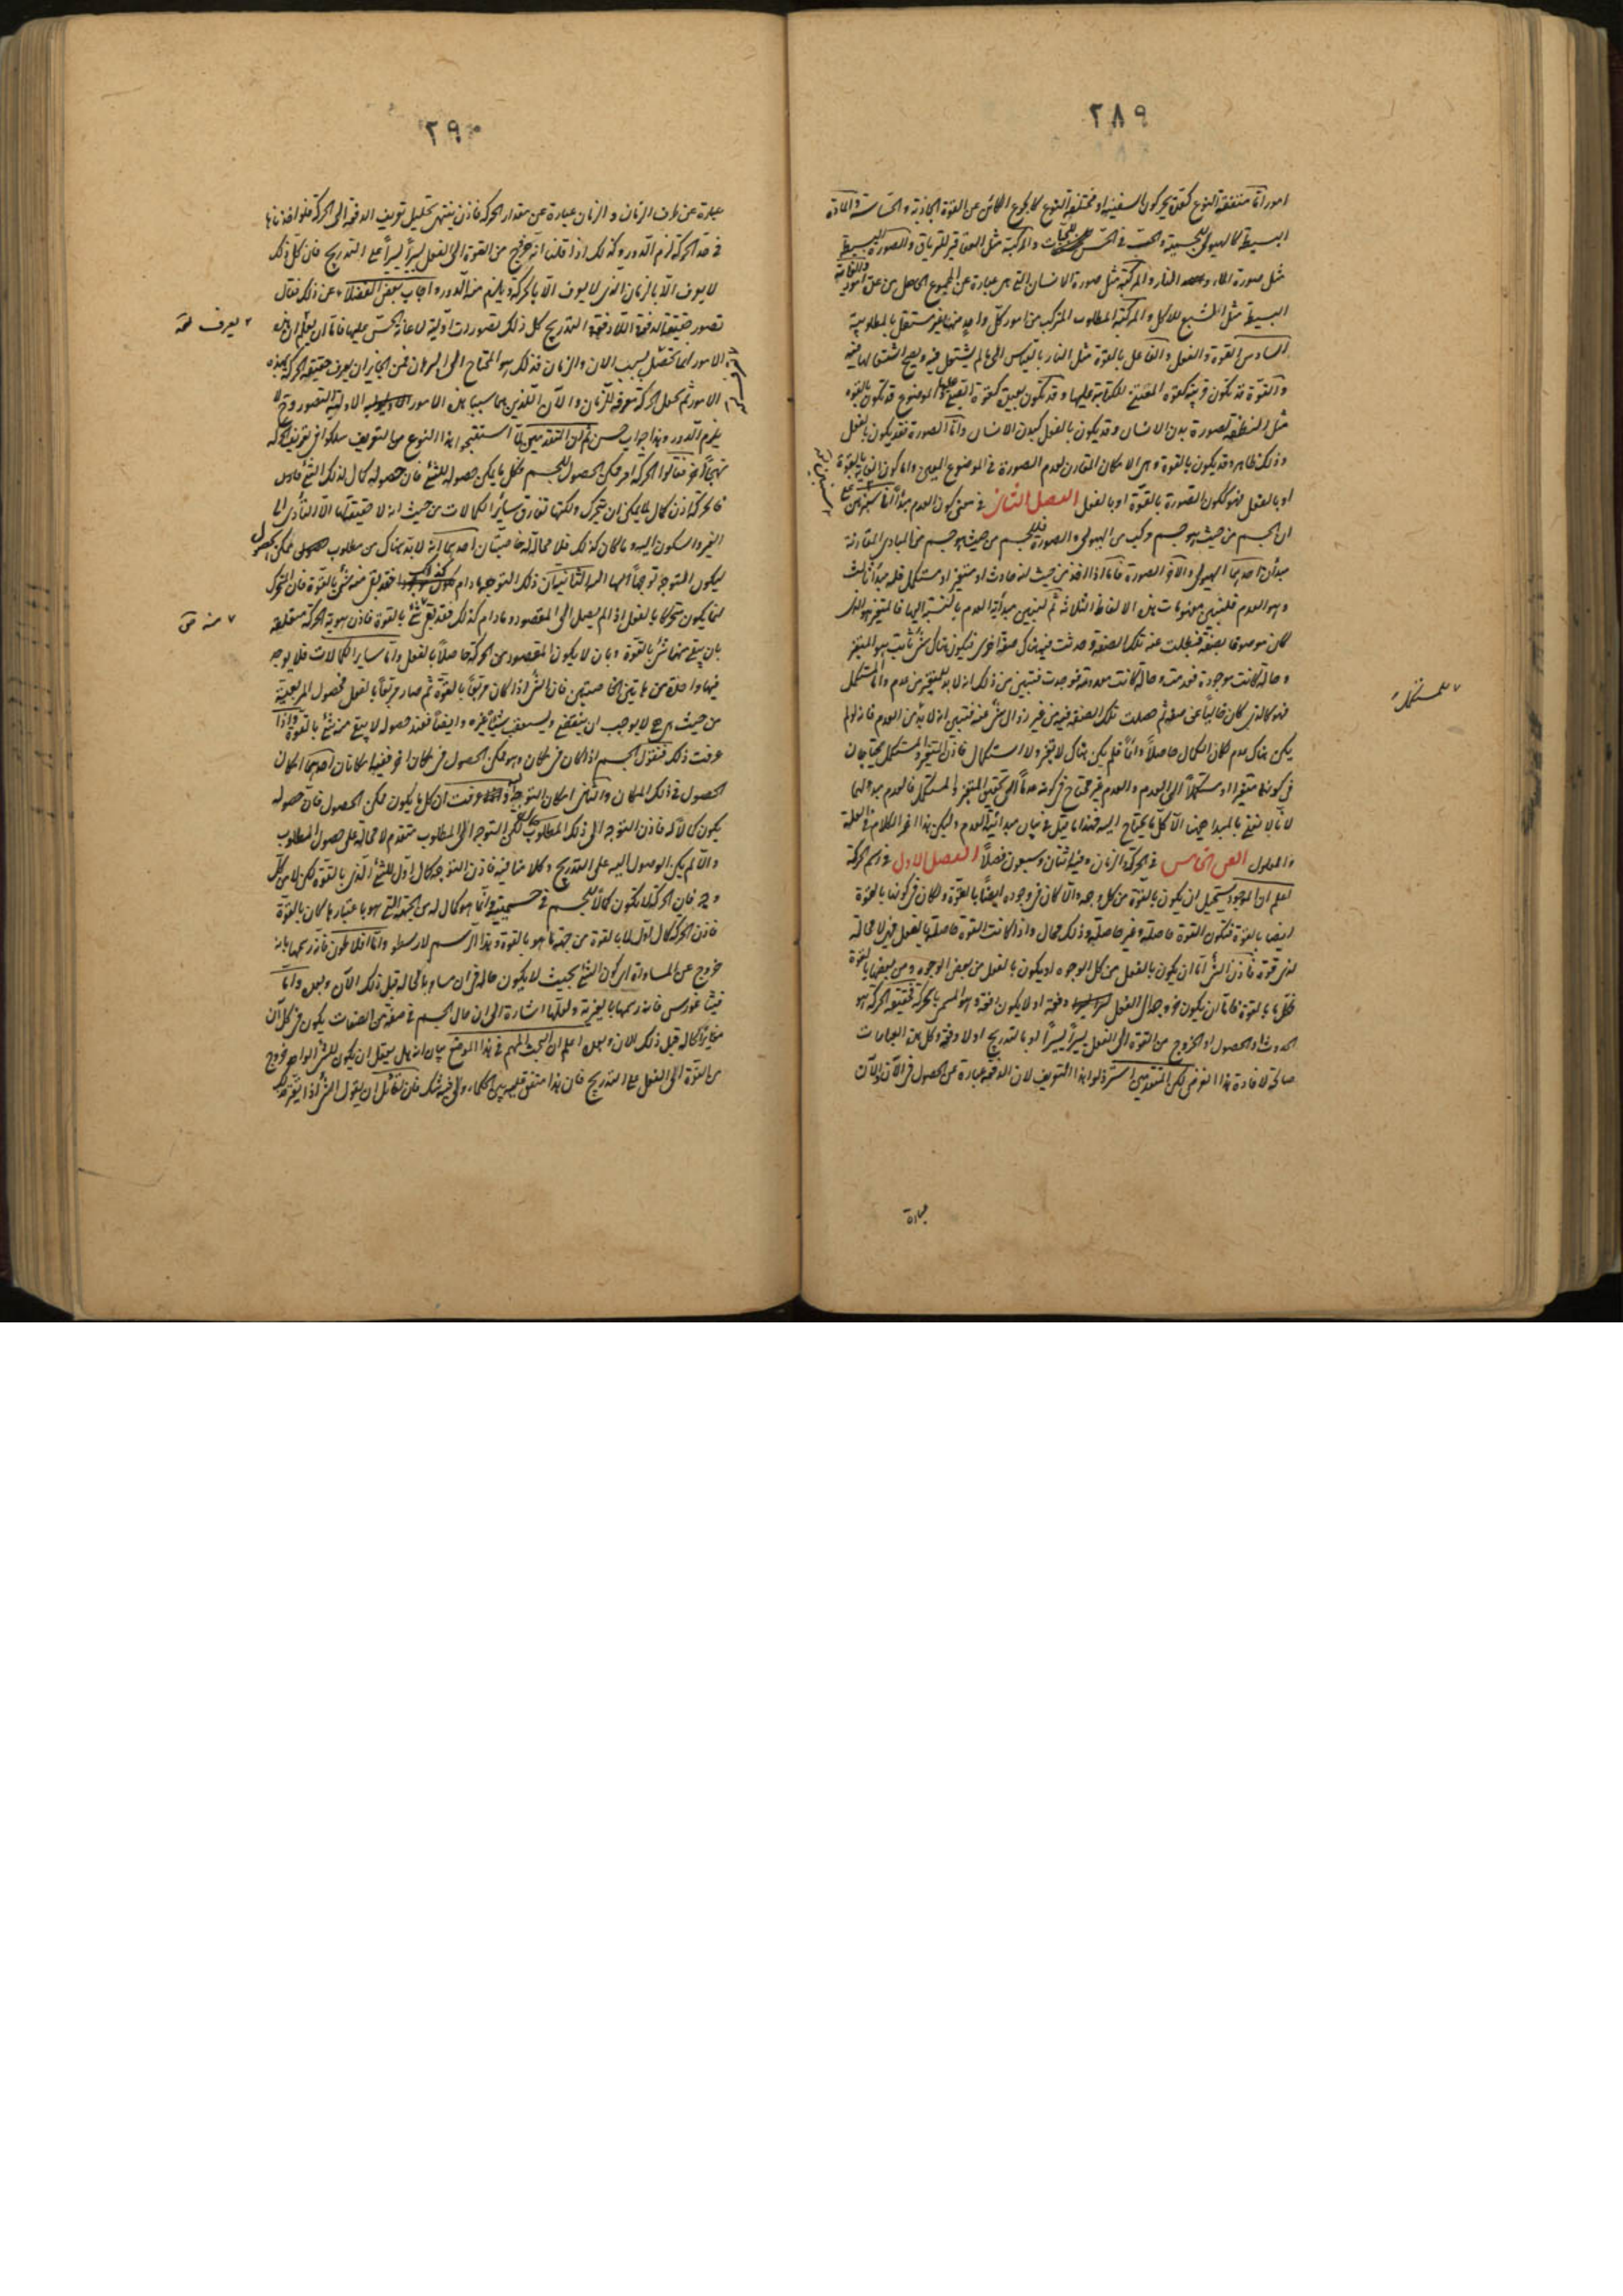 ٢٨٩
امور اما متفقة النوع كعدة يحركون السفينة او مختلفة النوع كالجوع الكائن عن القوة الجاذبة والحساسة والمادة
البسيطة كالهيولى للجسمية والخشب فى الحس والمركبة مثل العقاقير للترياق والصورة البسيطة
مثل صورة الماء والنار والمركبة مثل صورة الانسان التى هى عبارة عن المجموع الحاصل من عدة امور والغاية
البسيطة مثل الشبع للاكل والمركبة المطلوب المتركب من امور كل واحد منها غير مستقل بالمطلوبية
السادس القوة والفعل والفاعل بالقوة مثل النار بالقياس الى ما لم يشتعل فيه ويصح اشتعالها فيه
والقوة قد تكون قريبة كقوة المتهيئ للكتابة عليها وقد تكون بعيدة كقوة الصبى عليها والموضوع قد يكون بالقوة
مثل النطفة لصورة بدن الانسان وقد يكون بالفعل كبدن الانسان واما الصورة فقد يكون بالفعل
وذلك ظاهر وقد يكون بالقوة وهى الامكان المقارن لعدم الصورة فى الموضوع المعين واما كون الغاية بالقوة
او بالفعل فهو ككون الصورة بالقوة او بالفعل الفصل الثانى فى معنى كون العدم مبدأ
ان الجسم من حيث هو جسم مركب من الهيولى والصورة فللجسم من حيث هو جسم من المبادى المقارنة
مبدأن احدهما الهيولى والاخر الصورة فاما اذا اخذ من حيث انه حادث او متغير او مستكمل فله مبدأ ثالث
وهو العدم فلنبين مفهومات هذه الالفاظ الثلاثة ثم لنبين مبدأية العدم بالنسبة اليها فالمتغير هو الذى
كان موصوفا بصفة فبطلت عنه تلك الصفة وحدثت فيه هناك صفة اخرى فيكون هناك شئ ثابت هو المتغير
وحالة كانت موجودة فعدمت وحالة كانت معدومة فوجدت فتبين من ذلك انه لا بد للمتغير من عدم واما المستكمل
فهو كالذى كان خاليا عن صفة ثم حصلت تلك الصفة فيه من غير زوال شئ عنه فتبين انه لا بد من العدم فانه لو لم
يكن هناك عدم لكان الكمال حاصلا دائما فلم يكن هناك لا تغير ولا استكمال فاذن المتغير والمستكمل يحتاجان
فى كونهما متغيرا او مستكملا الى العدم والعدم غير محتاج فى كونه عدما الى تحقق المتغير والمستكمل فالعدم مبدأ لهما
لانا لا نعنى بالمبدا ههنا الا كل ما يحتاج اليه فهذا ما قيل فى بيان مبدائية العدم وليكن هذا اخر الكلام فى العلة
والمعلول الفن الخامس فى الحركة والزمان وفيه اثنان وسبعون فصلا الفصل الاول فى رسم الحركة
اعلم ان الموجود يستحيل ان يكون بالقوة من كل وجه والا لكان فى وجوده ايضا بالقوة ولكان فى كونها بالقوة
ايضا بالقوة فتكون القوة حاصلة وغير حاصلة وذلك محال واذا كانت القوة حاصلة بالفعل فهى لا محالة
لذى قوة فاذن الشئ اما ان يكون بالفعل من كل الوجوه او يكون بالفعل من بعض الوجوه ومن بعضها بالقوة
فكل ما بالقوة فاما ان يكون خروجه الى الفعل دفعة او لا يكون دفعة وهو المسمى بالحركة فحقيقة الحركة هو
الحدوث او الحصول او الخروج من القوة الى الفعل يسيرا يسيرا او بالتدريج او لا دفعة وكل هذه العبارات
صالحة لافادة هذا الغرض لكن المتقدمين استرذلوا هذا التعريف لان الدفعة عبارة عن الحصول فى الآن والآن
عبارة
٢ المستكمل
٢٩٠
عبارة عن طرف الزمان والزمان عبارة عن مقدار الحركة فاذن ينتهى تحليل تعريف الدفعة الى الحركة فلو اخذناها
فى حد الحركة لزم الدور وكذلك اذا قلنا انه خروج من القوة الى الفعل يسيرا يسيرا على التدريج فان كل ذلك
لا يعرف الا بالزمان الذى لا يعرف الا بالحركة ويلزم منه الدور واجاب بعض الفضلاء عن ذلك فقال
تصور حقيقة الدفعة اللادفعة التدريج كل ذلك تصورات اولية لاعانة الحس عليها فاما ان يعلم ان هذه
الامور انما تحصل بسبب الان والزمان فذلك هو المحتاج الى البرهان فمن الجائز ان يعرف حقيقة الحركة بهذه
الامور ثم تجعل الحركة معرفة للزمان والآن اللذين هما سببا هذه الامور الاولية التصور وح لا
يلزم الدور وهذا جواب حسن ثم ان المتقدمين لما استقبحوا هذا النوع من التعريف سلكوا فى تعريف الحركة
نهجا اخر فقالوا الحركة امر ممكن الحصول للجسم وكل ما يمكن حصوله للشئ فان حصوله كمال لذلك الشئ فاذن
فالحركة اذن كمال لما يمكن ان يتحرك ولكنها تفارق سائر الكمالات من حيث انه لا حقيقة لها الا التأدى الى
الغير والسكون اليه وما كان كذلك فلا محالة له خاصيتان احدهما انه لا بد هناك من مطلوب ممكن الحصول
ليكون التوجه توجها اليه الثانية ان ذلك التوجه ما دام كذلك فقد بقى منه شئ بالقوة فان المتحرك
انما يكون متحركا بالفعل اذا لم يصل الى المقصود وما دام كذلك فقد بقى شئ بالقوة فاذن هوية الحركة متعلقة
بان يبقى منها شئ بالقوة وبان لا يكون المقصود من الحركة حاصلا بالفعل واما سائر الكمالات فلا يوجد
فيها واحدة من هاتين الخاصيتين فان الشئ اذا كان مربعا بالقوة ثم صار مربعا بالفعل فحصول المربعية
من حيث هى هى لا يوجب ان يستعقب شيئا غيره وايضا فعند حصوله لا يبقى منه شئ بالقوة واذا
عرفت ذلك فنقول الجسم اذا كان فى مكان وهو ممكن الحصول فى مكان اخر ففيه امكانان احدهما امكان
الحصول فى ذلك المكان والثانى امكان التوجه اليه وقد عرفت ان كل ما يكون ممكن الحصول فان حصوله
يكون كمالا له فاذن التوجه الى ذلك المطلوب كمال لكن التوجه الى المطلوب متقدم لا محالة على حصول المطلوب
والا لم يكن الوصول اليه على التدريج وكلامنا فيه فاذن التوجه كمال اول للشئ الذى بالقوة لكن لا من كل
وجه فان الحركة لا تكون كمالا للجسم فى جسميته وانما هو كمال له من الجهة التى هو باعتبارها كان بالقوة
فاذن الحركة كمال اول لما بالقوة من جهة ما هو بالقوة وهذا الرسم لارسطو واما افلاطون فانه رسمها بانه
خروج عن المساواة اى كون الشئ بحيث لا يكون حاله فى ان مساويا لحاله قبل ذلك الآن وبعده واما
فيثاغورس فانه رسمها بالغيرية ولعلها اشارة الى ان حال الجسم فى صفة من الصفات يكون فى كل آن
مغايرا لحاله قبل ذلك الان وبعده واعلم ان البحث المهم فى هذا الموضع بيان انه هل يعقل ان يكون للشئ الواحد خروج
من القوة الى الفعل على التدريج فان هذا متفق عليه بين الحكماء ولى فيه شك فان لقائل ان يقول الشئ اذا تغير فذلك
٢ يعرف
٧ منه